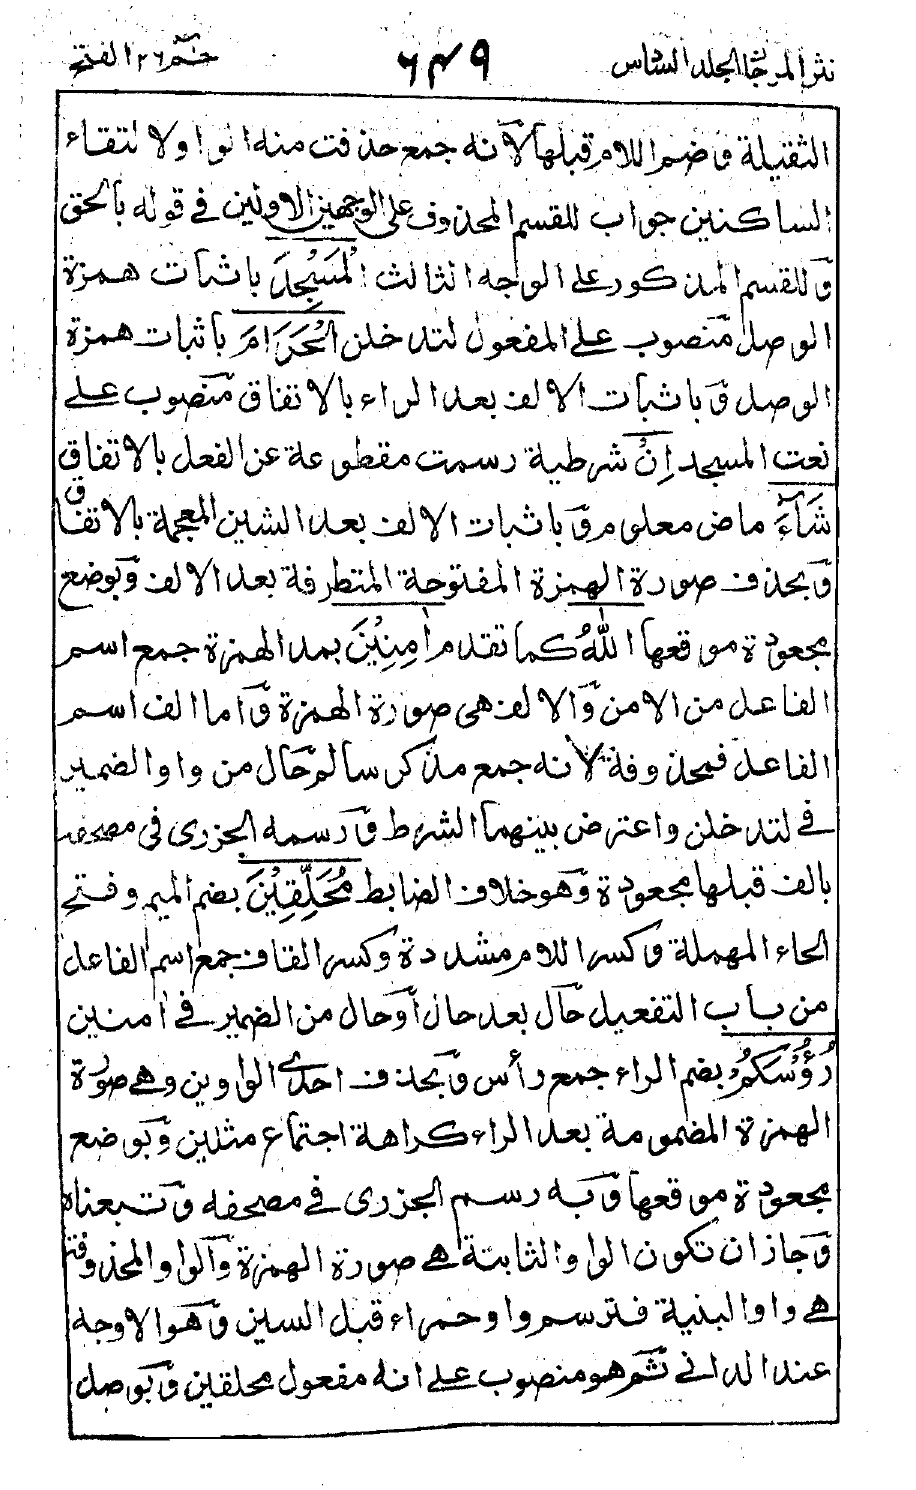 نثر المرجان الجلد السادس ٦٤٩ حٰم ٢٦ الفتح
الثقيلة وضم اللام قبلها لأنه جمع حذفت منه الواو لالتقاء
الساكنين جواب للقسم المحذوف على الوجهين الاولين في قوله بالحق
وللقسم المذكور على الوجه الثالث الْمَسْجِدَ باثبات همزة
الوصل منصوب على المفعول لتدخلن الْحَرَامَ باثبات همزة
الوصل وباثبات الالف بعد الراء بالاتفاق منصوب على
نعت المسجد اِنْ شرطية رسمت مقطوعة عن الفعل بالاتفاق
شَآءَ ماض معلوم وباثبات الالف بعد الشين المعجمة بالاتفاق
وبحذف صورة الهمزة المفتوحة المتطرفة بعد الالف وبوضع
مجعودة موقعها اللّٰهُ كما تقدم اٰمِنِيْنَ بمد الهمزة جمع اسم
الفاعل من الامن والالف هي صورة الهمزة واما الف اسم
الفاعل فمحذوفة لأنه جمع مذكر سالم حال من واو الضمير
في لتدخلن واعترض بينهما الشرط ورسمه الجزري في مصحفه
بالف قبلها مجعودة وهو خلاف الضابط مُحَلِّقِيْنَ بضم الميم وفتح
الحاء المهملة وكسر اللام مشددة وكسر القاف جمع اسم الفاعل
من باب التفعيل حال بعد حال أو حال من الضمير في اٰمنين
رُؤُسَكُمْ بضم الراء جمع رأس وبحذف احدى الواوين وهي صورة
الهمزة المضمومة بعد الراء كراهة اجتماع مثلين وبوضع
مجعودة موقعها وبه رسم الجزري في مصحفه وتبعناه
وجاز ان تكون الواو الثابتة هي صورة الهمزة والواو المحذوفة
هي واو البنية فترسم واو حمراء قبل السين وهو الاوجه
عند الداني ثم هو منصوب على انه مفعول محلقين وبوصل